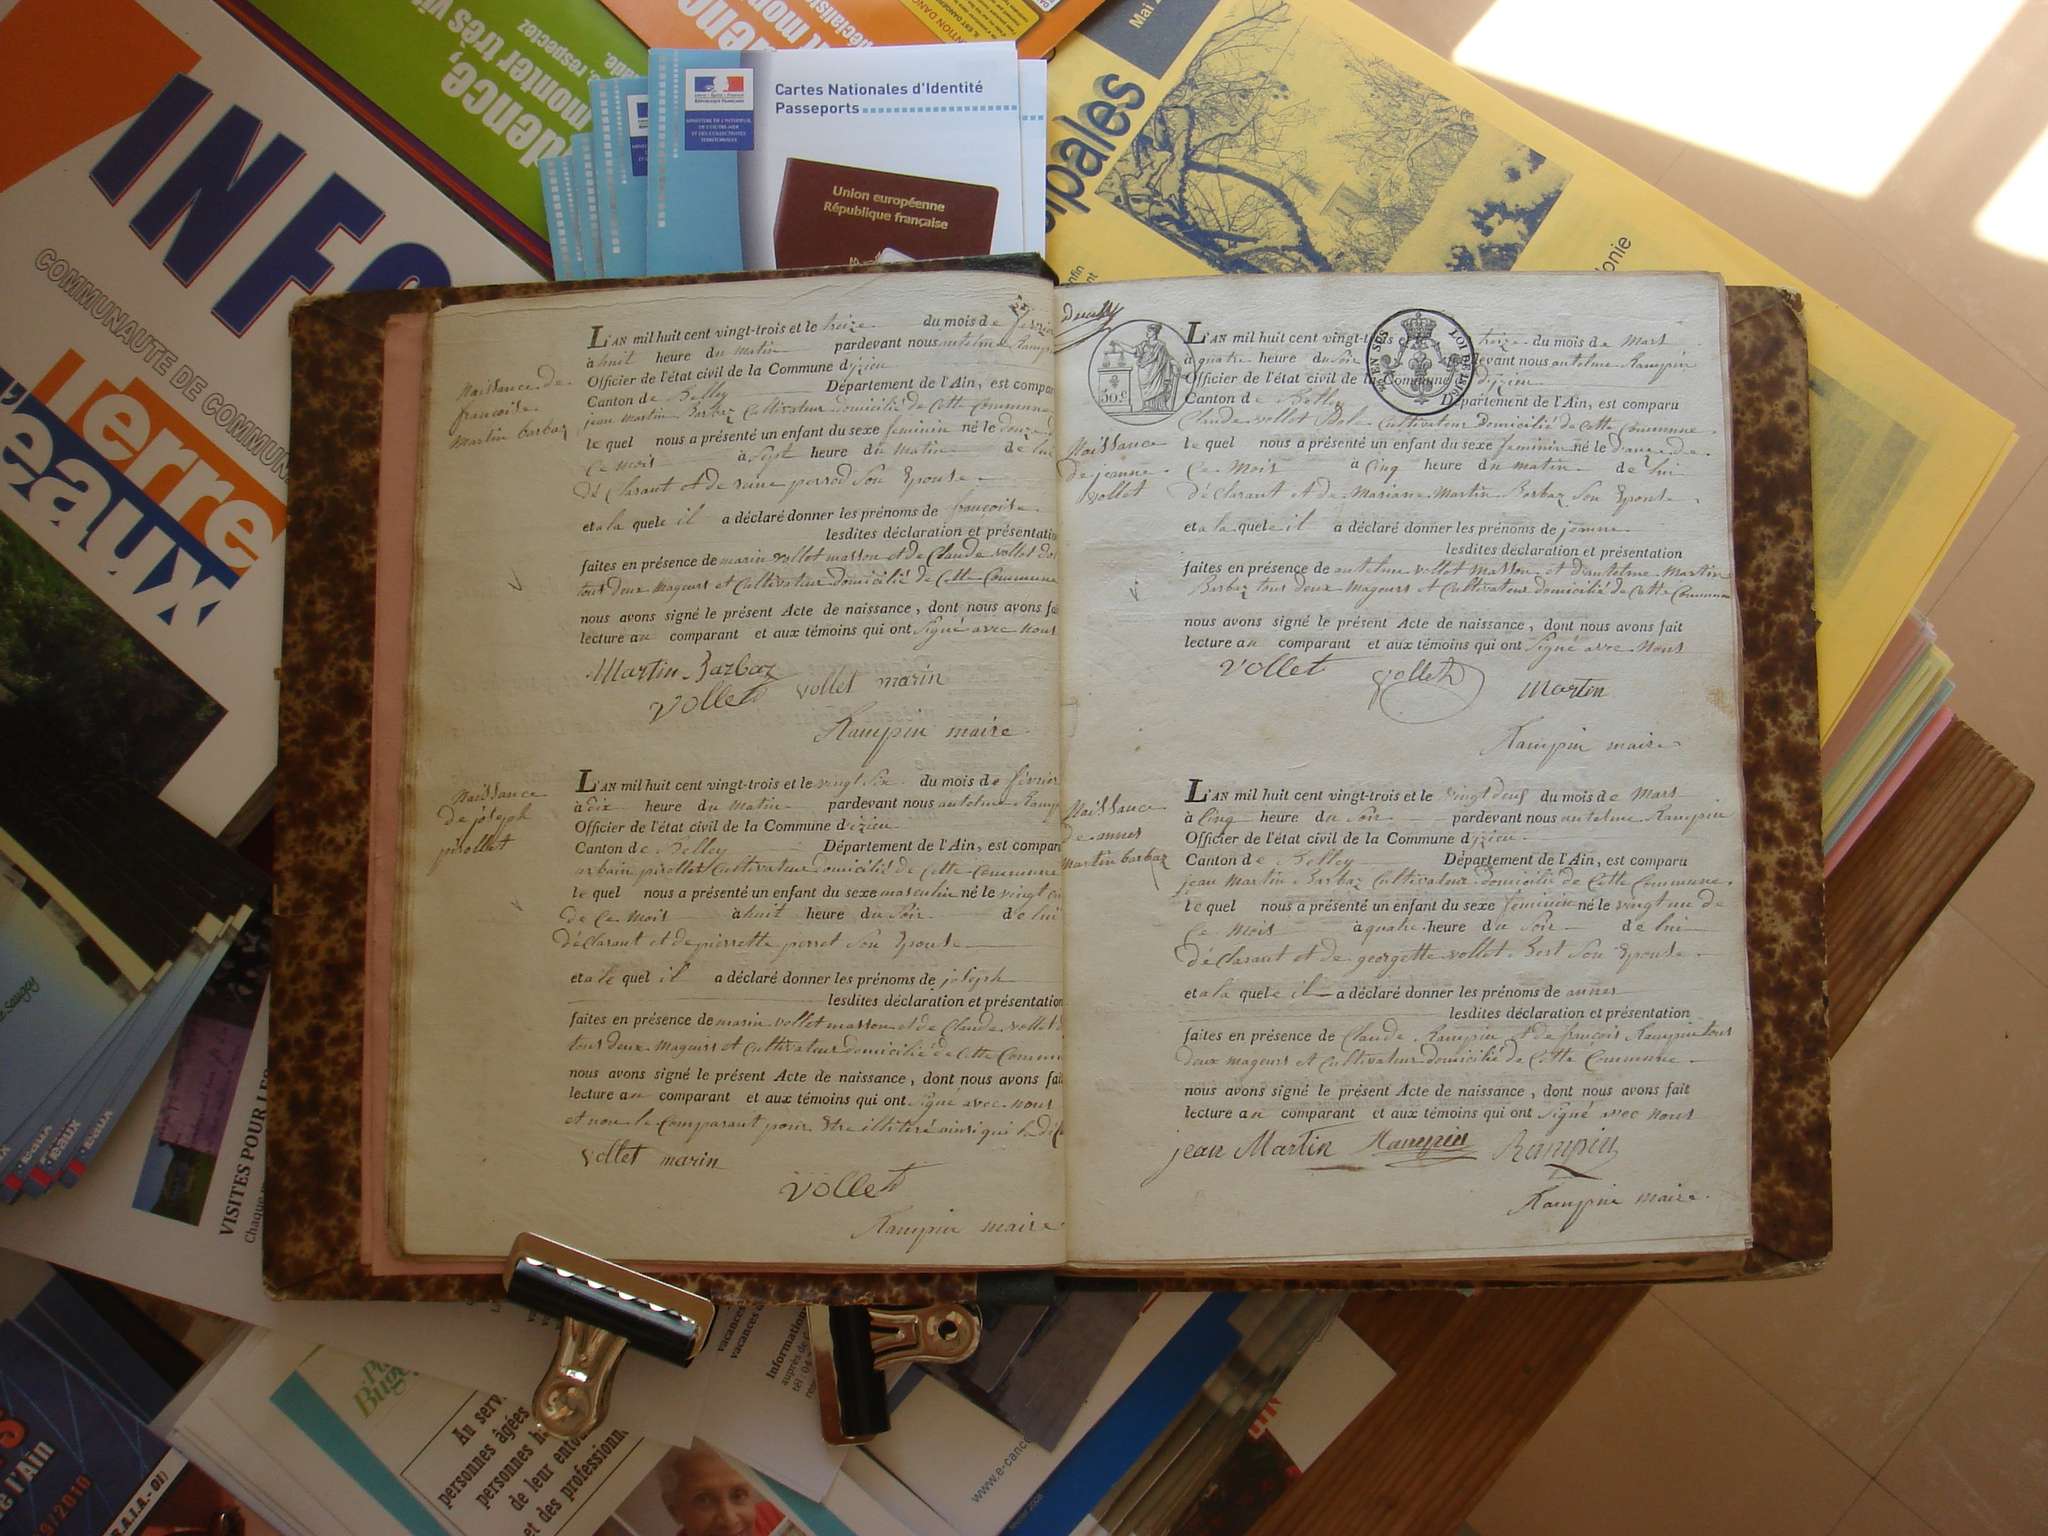 INFO
COMMUNAUTE DE COMMUN
Terre
eaux
dence,
monter très vi
, respectez
Cartes Nationales d'Identité
Passeports
MINISTÈRE DE L'INTÉRIEUR
DE L'OUTRE-MER
ET DES COLLECTIVITÉS
TERRITORIALES
Union européenne
République française
cipales
Mai
lonie
Naissance de
françoise
Martin barbaz
L'AN mil huit cent vingt-trois et le treize du mois de févrie
à huit heure du matin pardevant nous antelme Rampi
Officier de l'état civil de la Commune d'izieu
Canton de Belley Département de l'Ain, est compar
jean Martin Barbaz Cultivateur domicilié de cette Commune
le quel nous a présenté un enfant du sexe feminin né le douze
Ce mois à Sept heure du Matin de lui
déclarant et de reine perrod Son Epouse
et a la quele il a déclaré donner les prénoms de françoise
lesdites déclaration et présentation
faites en présence de marin vollet masson et de Claude vollet
tous deux Mageurs et Cultivateur domicilié de Cette Commune
nous avons signé le présent Acte de naissance, dont nous avons fai
lecture au comparant et aux témoins qui ont Signé avec Nous
Martin Barbaz
Vollet vollet marin
Rampin maire
Naissance
de joseph
pirollet
L'AN mil huit cent vingt-trois et le vingt Six du mois de février
à dix heure du matin pardevant nous antelme Ramp
Officier de l'état civil de la Commune d'izieu
Canton de Belley Département de l'Ain, est compar
urbain pirollet Cultivateur domicilié de Cette Commune
le quel nous a présenté un enfant du sexe masculin né le vingt
de Ce Mois à huit heure du Soir de lui
déclarant et de pierrette perret Son Epouse
et a le quel il a déclaré donner les prénoms de joseph
lesdites déclaration et présentation
faites en présence de marin vollet masson et de Claude vollet
tous deux Mageurs et Cultivateur domicilié de Cette Commu
nous avons signé le présent Acte de naissance, dont nous avons fai
lecture au comparant et aux témoins qui ont Signé avec nous
et non le Comparant pour Etre illitéré ainsi qui l'a di
vollet marin
Vollet
Rampin maire
30 c
EN SUS
LOI DE 1816
L'AN mil huit cent vingt-trois treize du mois de Mars
à quatre heure du Soir pardevant nous antelme Rampin
Officier de l'état civil de la Commune d'yzieu
Canton de Belley Département de l'Ain, est comparu
Claude vollet Dole Cultivateur domicilié de Cette Commune
Naissance
de jeanne
vollet
le quel nous a présenté un enfant du sexe feminin né le douze de
Ce Mois à Cinq heure du matin de lui
déclarant et de Mariane Martin Barbaz Son Epouse
et a la quele il a déclaré donner les prénoms de jeanne
lesdites déclaration et présentation
faites en présence de antelme vollet Masson et d'antelme Martin
Barbaz tous deux Mageurs et Cultivateur domicilié de Cette Commune
nous avons signé le présent Acte de naissance, dont nous avons fait
lecture au comparant et aux témoins qui ont Signé avec Nous
Vollet Vollet Martin
Rampin maire
Naissance
de annes
Martin barbaz
L'AN mil huit cent vingt-trois et le vingt deuf du mois de Mars
à Cinq heure du Soir pardevant nous antelme Rampin
Officier de l'état civil de la Commune d'yzieu
Canton de Belley Département de l'Ain, est comparu
jean Martin Barbaz Cultivateur domicilié de Cette Commune
le quel nous a présenté un enfant du sexe feminin né le vingt un de
Ce Mois à quatre heure du Soir de lui
déclarant et de georgette vollet Best Son Epouse
et a la quele il a déclaré donner les prénoms de annes
lesdites déclaration et présentation
faites en présence de Claude Rampin et de françois Rampin tous
deux mageurs et Cultivateur domicilié de Cette Commune
nous avons signé le présent Acte de naissance, dont nous avons fait
lecture au comparant et aux témoins qui ont Signé avec nous
jean Martin Rampin Rampin
Rampin maire
VISITES POUR LES
Chaque
Au serv
personnes âgées
personnes ha
de leur ento
et des professionn
vacances
vacances a
Information
auprès de
www.e-canc
l'Ain
9/2010